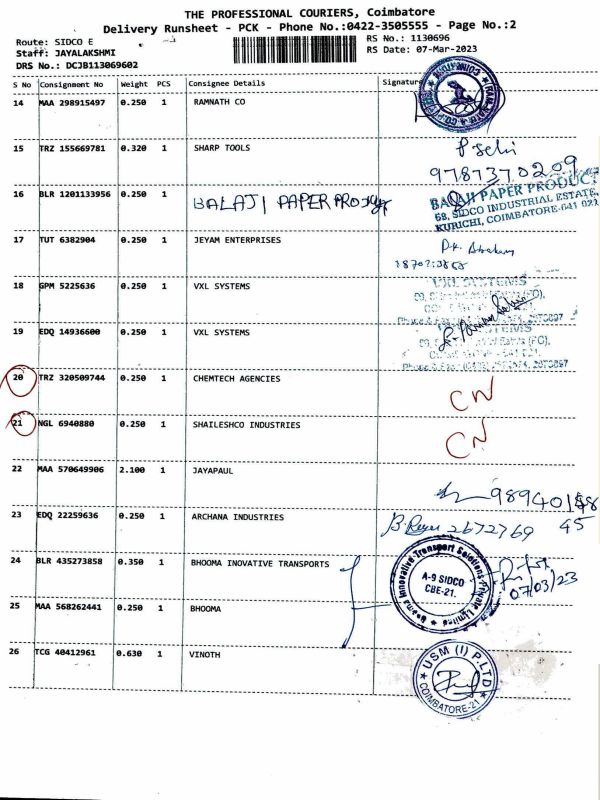 THE PROFESSIONAL COURIERS, Coimbatore
Delivery Runsheet - PCK - Phone No.:0422-3505555 - Page No.:2
Route: SIDCO E
RS No.: 1130696
Staff: JAYALAKSHMI
RS Date: 07-Mar-2023
DRS No.: DCJB113069602
S No Consignment No Weight PCS Consignee Details Signature
14 MAA 298915497 0.250 1 RAMNATH CO
15 TRZ 155669781 0.320 1 SHARP TOOLS
P Selvi
9787370209
16 BLR 1201133956 0.250 1 BALAJI PAPER
BALAJI PAPER PRODUCT
68, SIDCO INDUSTRIAL ESTATE,
KURICHI, COIMBATORE-641 021
17 TUT 6382904 0.250 1 JEYAM ENTERPRISES
18 GPM 5225636 0.250 1 VXL SYSTEMS
VXL SYSTEMS
19 EDQ 14936600 0.250 1 VXL SYSTEMS
20 TRZ 320509744 0.250 1 CHEMTECH AGENCIES
CN
21 NGL 6940880 0.250 1 SHAILESHCO INDUSTRIES
CN
22 MAA 570649906 2.100 1 JAYAPAUL
23 EDQ 22259636 0.250 1 ARCHANA INDUSTRIES
2672769
45
24 BLR 435273858 0.350 1 BHOOMA INOVATIVE TRANSPORTS
Booma Innovative Transport Solutions Private Limited
A-9 SIDCO
CBE-21.
07/03/23
25 MAA 568262441 0.250 1 BHOOMA
26 TCG 40412961 0.630 1 VINOTH
USM (I) P.LTD
COIMBATORE-21